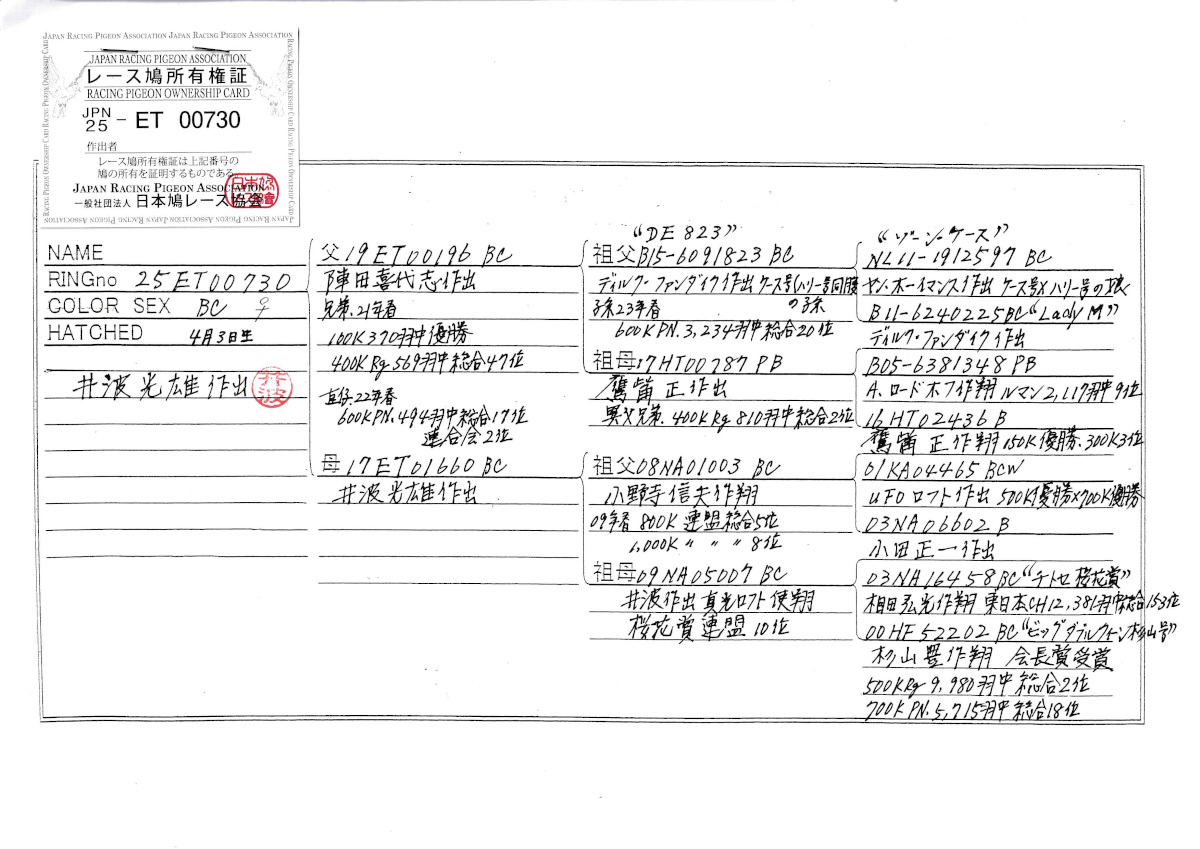 JAPAN RACING PIGEON ASSOCIATION JAPAN RACING PIGEON ASSOCIATION
JAPAN RACING PIGEON ASSOCIATION
レース鳩所有権証
RACING PIGEON OWNERSHIP CARD
JPN
25 - ET 00730
作出者
レース鳩所有権証は上記番号の
鳩の所有を証明するものである。
JAPAN RACING PIGEON ASSOCIATION
一般社団法人 日本鳩レース協会
NAME
RINGno 25ET00730
COLOR SEX BC ♀
HATCHED 4月3日生
井波光雄作出
井波
父19ET00196 BC
陣田喜代志作出
兄弟.21年春
100K370羽中優勝
400KRg569羽中総合47位
直仔.22年春
600KPN.494羽中総合17位
連合会2位
母17ET01660 BC
井波光雄作出
"DE823"
祖父B15-6091823 BC
ディルク・ファンダイク作出 ケース号(ハリー号同腹)
の子孫
子孫23年春
600KPN.3,234羽中総合20位
祖母17HT00787 PB
鷹觜 正作出
異父兄弟.400KRg810羽中総合2位
祖父08NA01003 BC
小野寺信夫作翔
09年春 800K 連盟総合5位
1,000K 〃 〃 〃 8位
祖母09NA05007 BC
井波作出真光ロフト使翔
桜花賞連盟10位
"ゾーン・ケース"
NL11-1912597 BC
ヤン・ホーイマンス作出 ケース号×ハリー号の娘
B11-6240225BC"Lady M"
ディルク・ファンダイク作出
B05-6381348 PB
A.ロードホフ作翔 ルマン2,117羽中9位
16HT02436 B
鷹觜 正作翔 150K優勝.300K3位
01KA04465 BCW
UFOロフト作出 500K優勝×700K優勝
03NA06602 B
小田正一作出
03NA16458BC"チトセ桜花賞"
相田弘光作翔 東日本CH12,381羽中総合153位
00HF52202 BC"ビッグダブルクイーン杉山号"
杉山豊作翔 会長賞受賞
500KRg9,980羽中総合2位
700KPN.5,715羽中総合18位